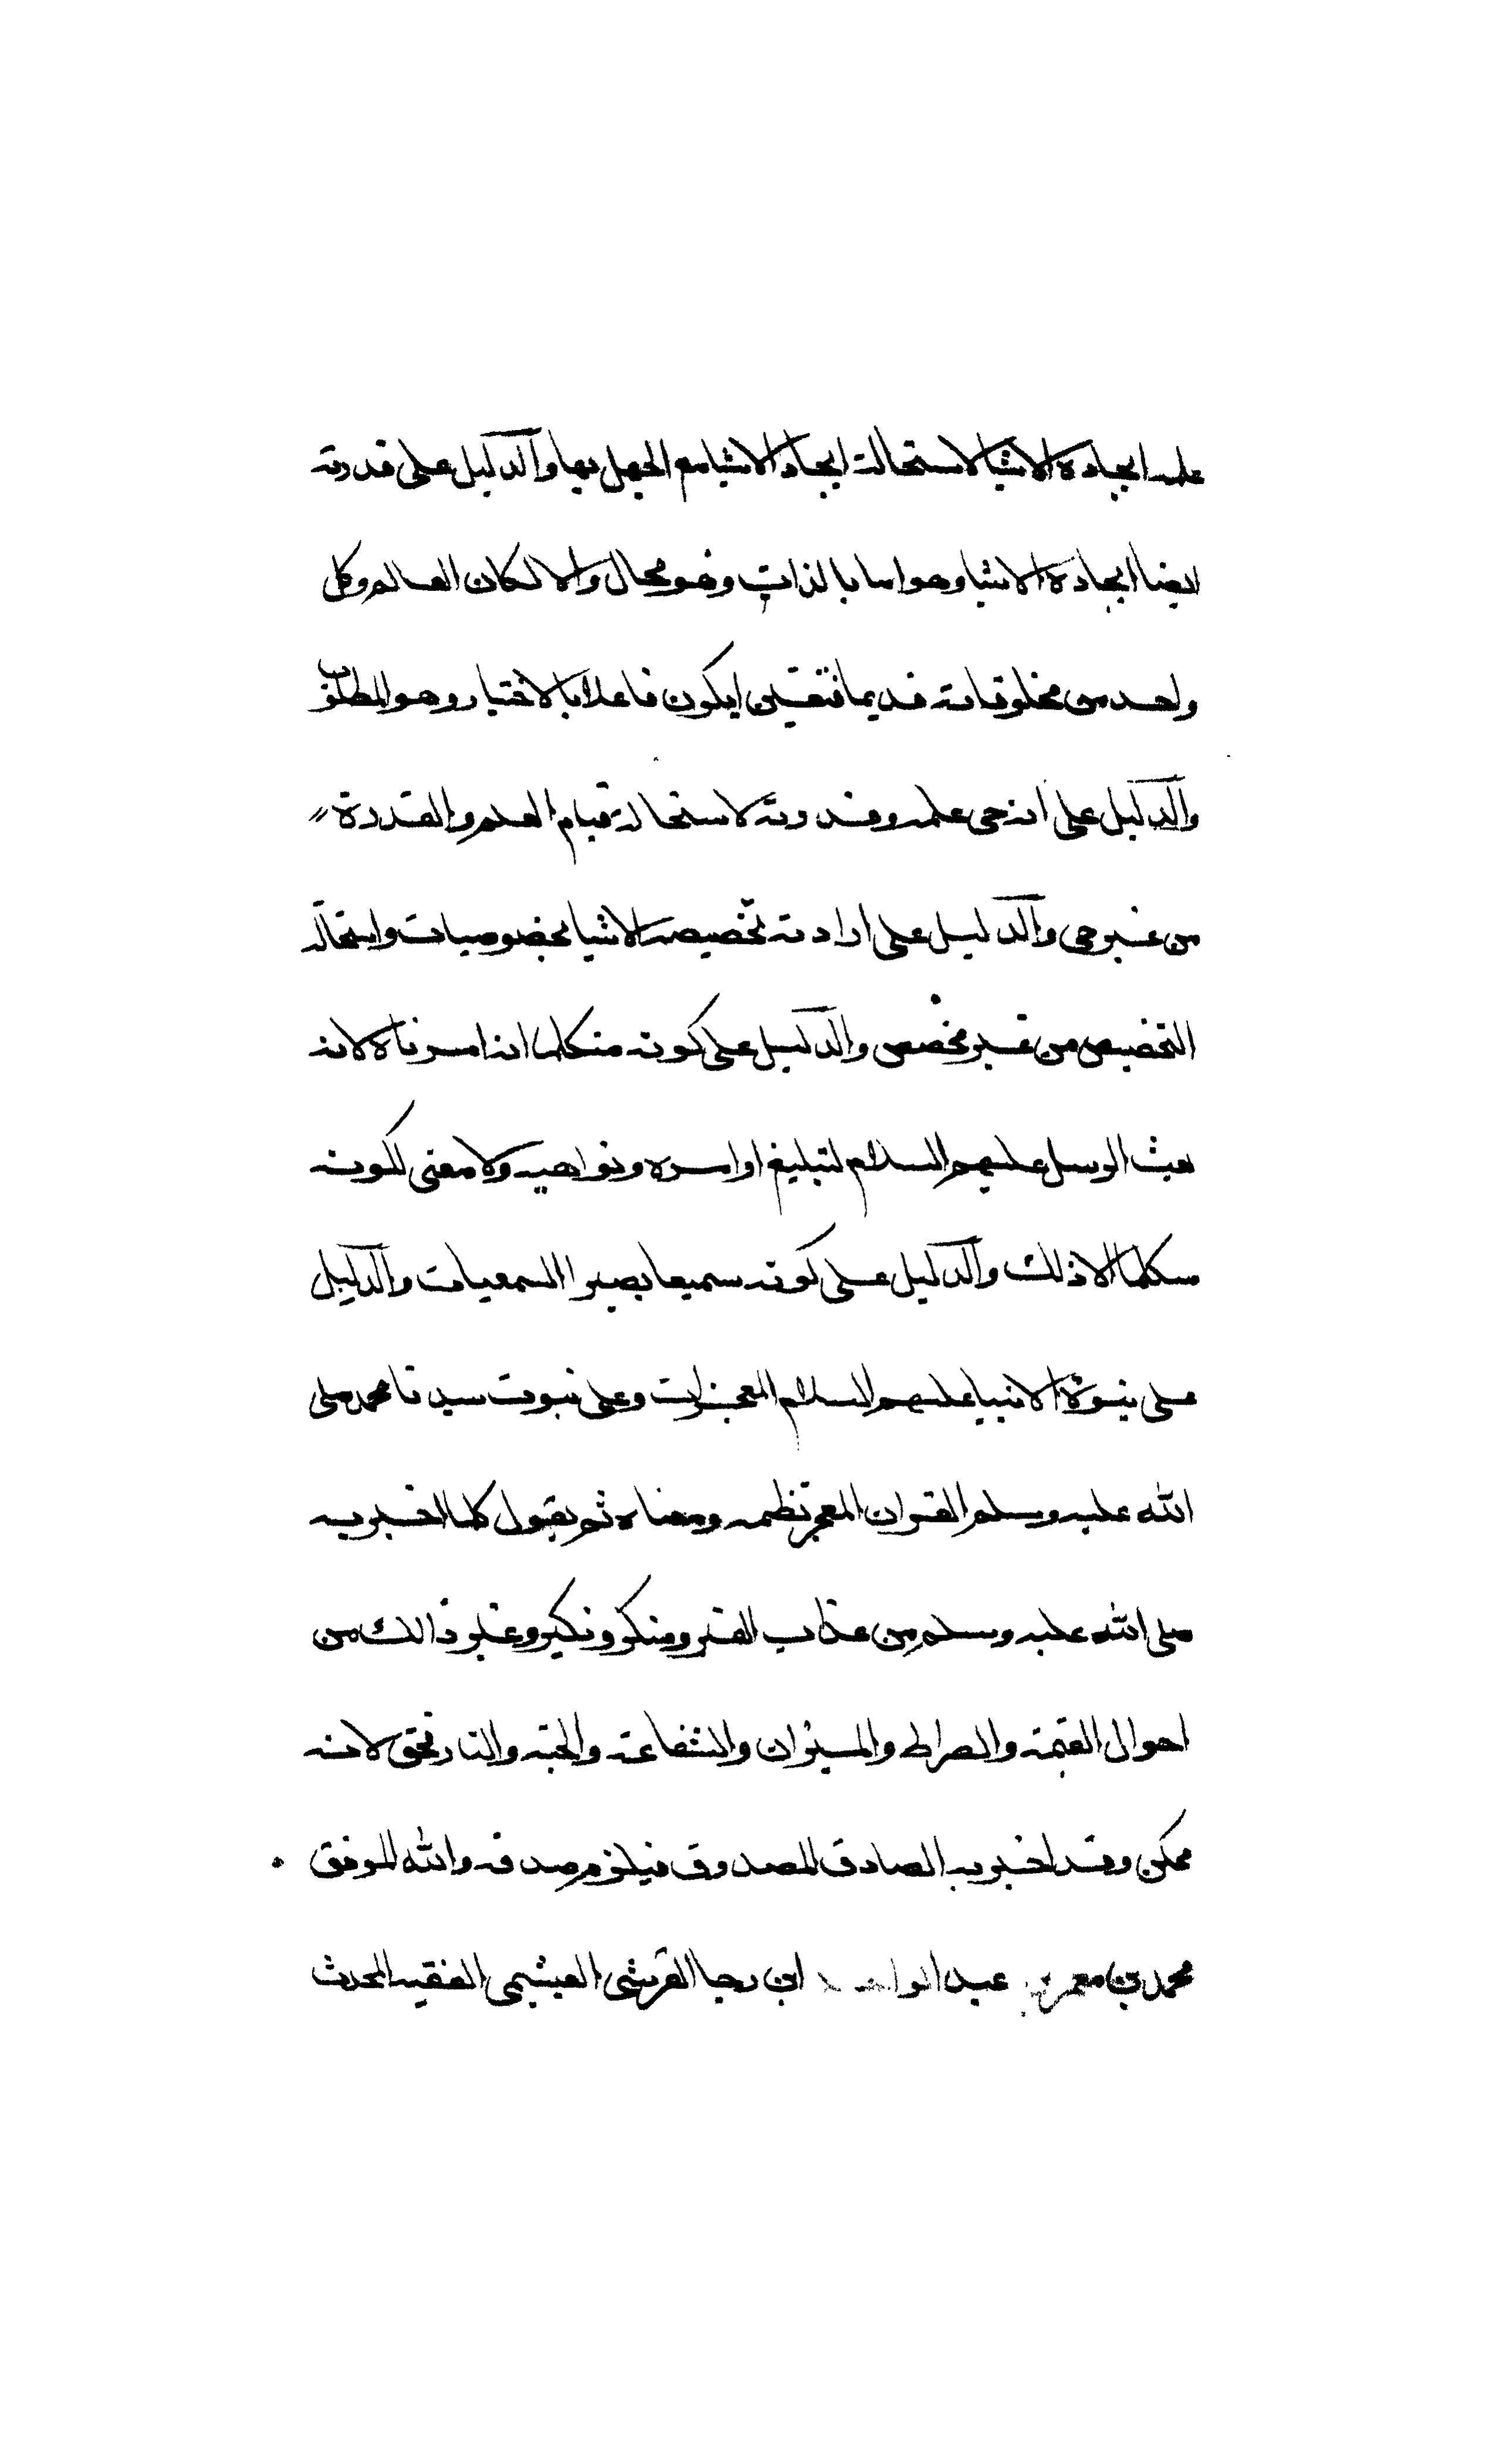 علمه ايجاده الاشيا لاستحالة ايجاد الاشيا مع الجهل بها والدليل على قدرته
ايضا ايجاده الاشيا وهو اما بالذات وهو محال والا لكان العالم وكل
واحد من مخلوقاته قديما فتعين ايكون فاعلا بالاختيار وهو المطلوب
والدليل على انه حى علمه وقدرته لاستحالة قيام العلم والقدرة
من غير حى والدليل على ارادته تخصيصه الاشيا بخصوصيات واستحالة
التخصيص من غير مخصص والدليل على كونه متكلما انه امر ناه لانه
بعث الرسل عليهم السلام لتبليغ اوامره ونواهيه ولا معنى لكونه
متكلما الا ذلك والدليل على كونه سميعا بصيرا السمعيات والدليل
على نبوة الانبيا عليهم السلام المعجزات وعلى نبوت سيدنا محمد صلى
الله عليه وسلم القران المعجز نظمه ومعناه ثم يقول كلما اخبر به
صلى الله عليه وسلم من عذاب القبر ومنكر ونكير وغير ذالك من
احوال القيمة والصراط والميزان والشفاعة والجنة والنار فحق لانه
ممكن وقد اخبر به الصادق المصدوق فيلزم صدقه والله الموفق
محمد بن معمر بن عبد الواحد ابن رجا القرشى العبشمى الفقيه المحدث